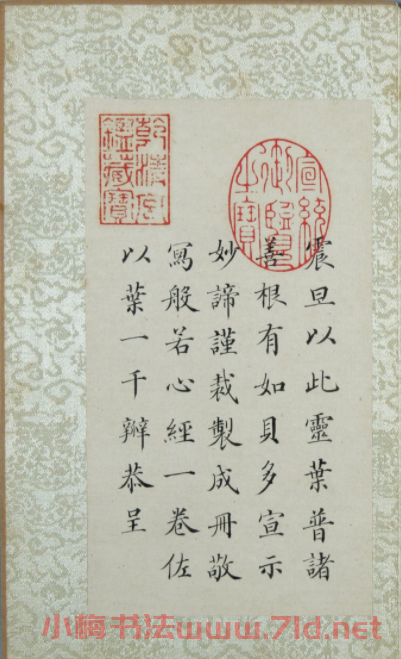 震旦以此靈葉普諸
善根有如貝多宣示
妙諦謹裁製成冊敬
寫般若心經一卷佐
以葉一千辦恭呈
宣統御覽之寶
乾清宮鑑藏寶
小梅书法www.7ld.net